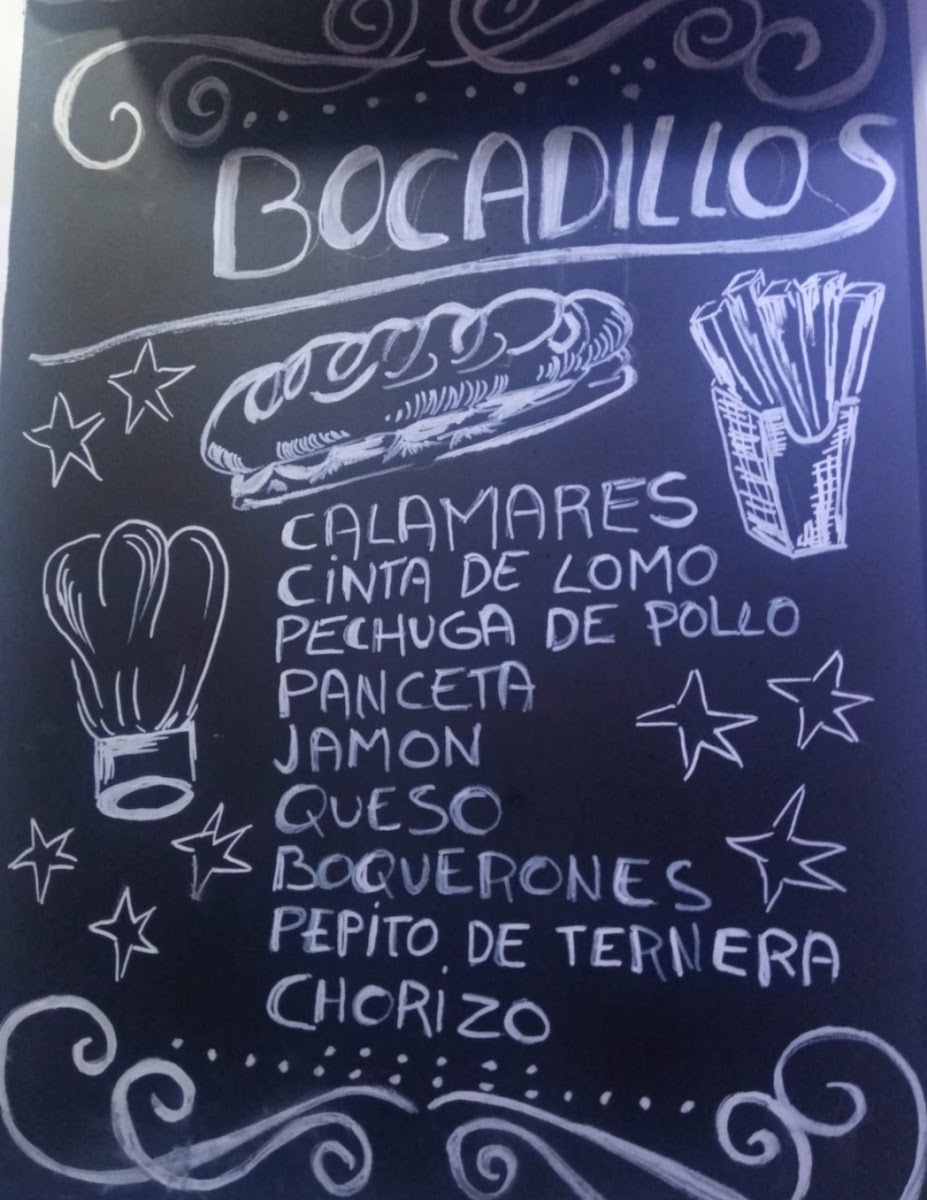 BOCADILLOS
CALAMARES
CINTA DE LOMO
PECHUGA DE POLLO
PANCETA
JAMON
QUESO
BOQUERONES
PEPITO DE TERNERA
CHORIZO